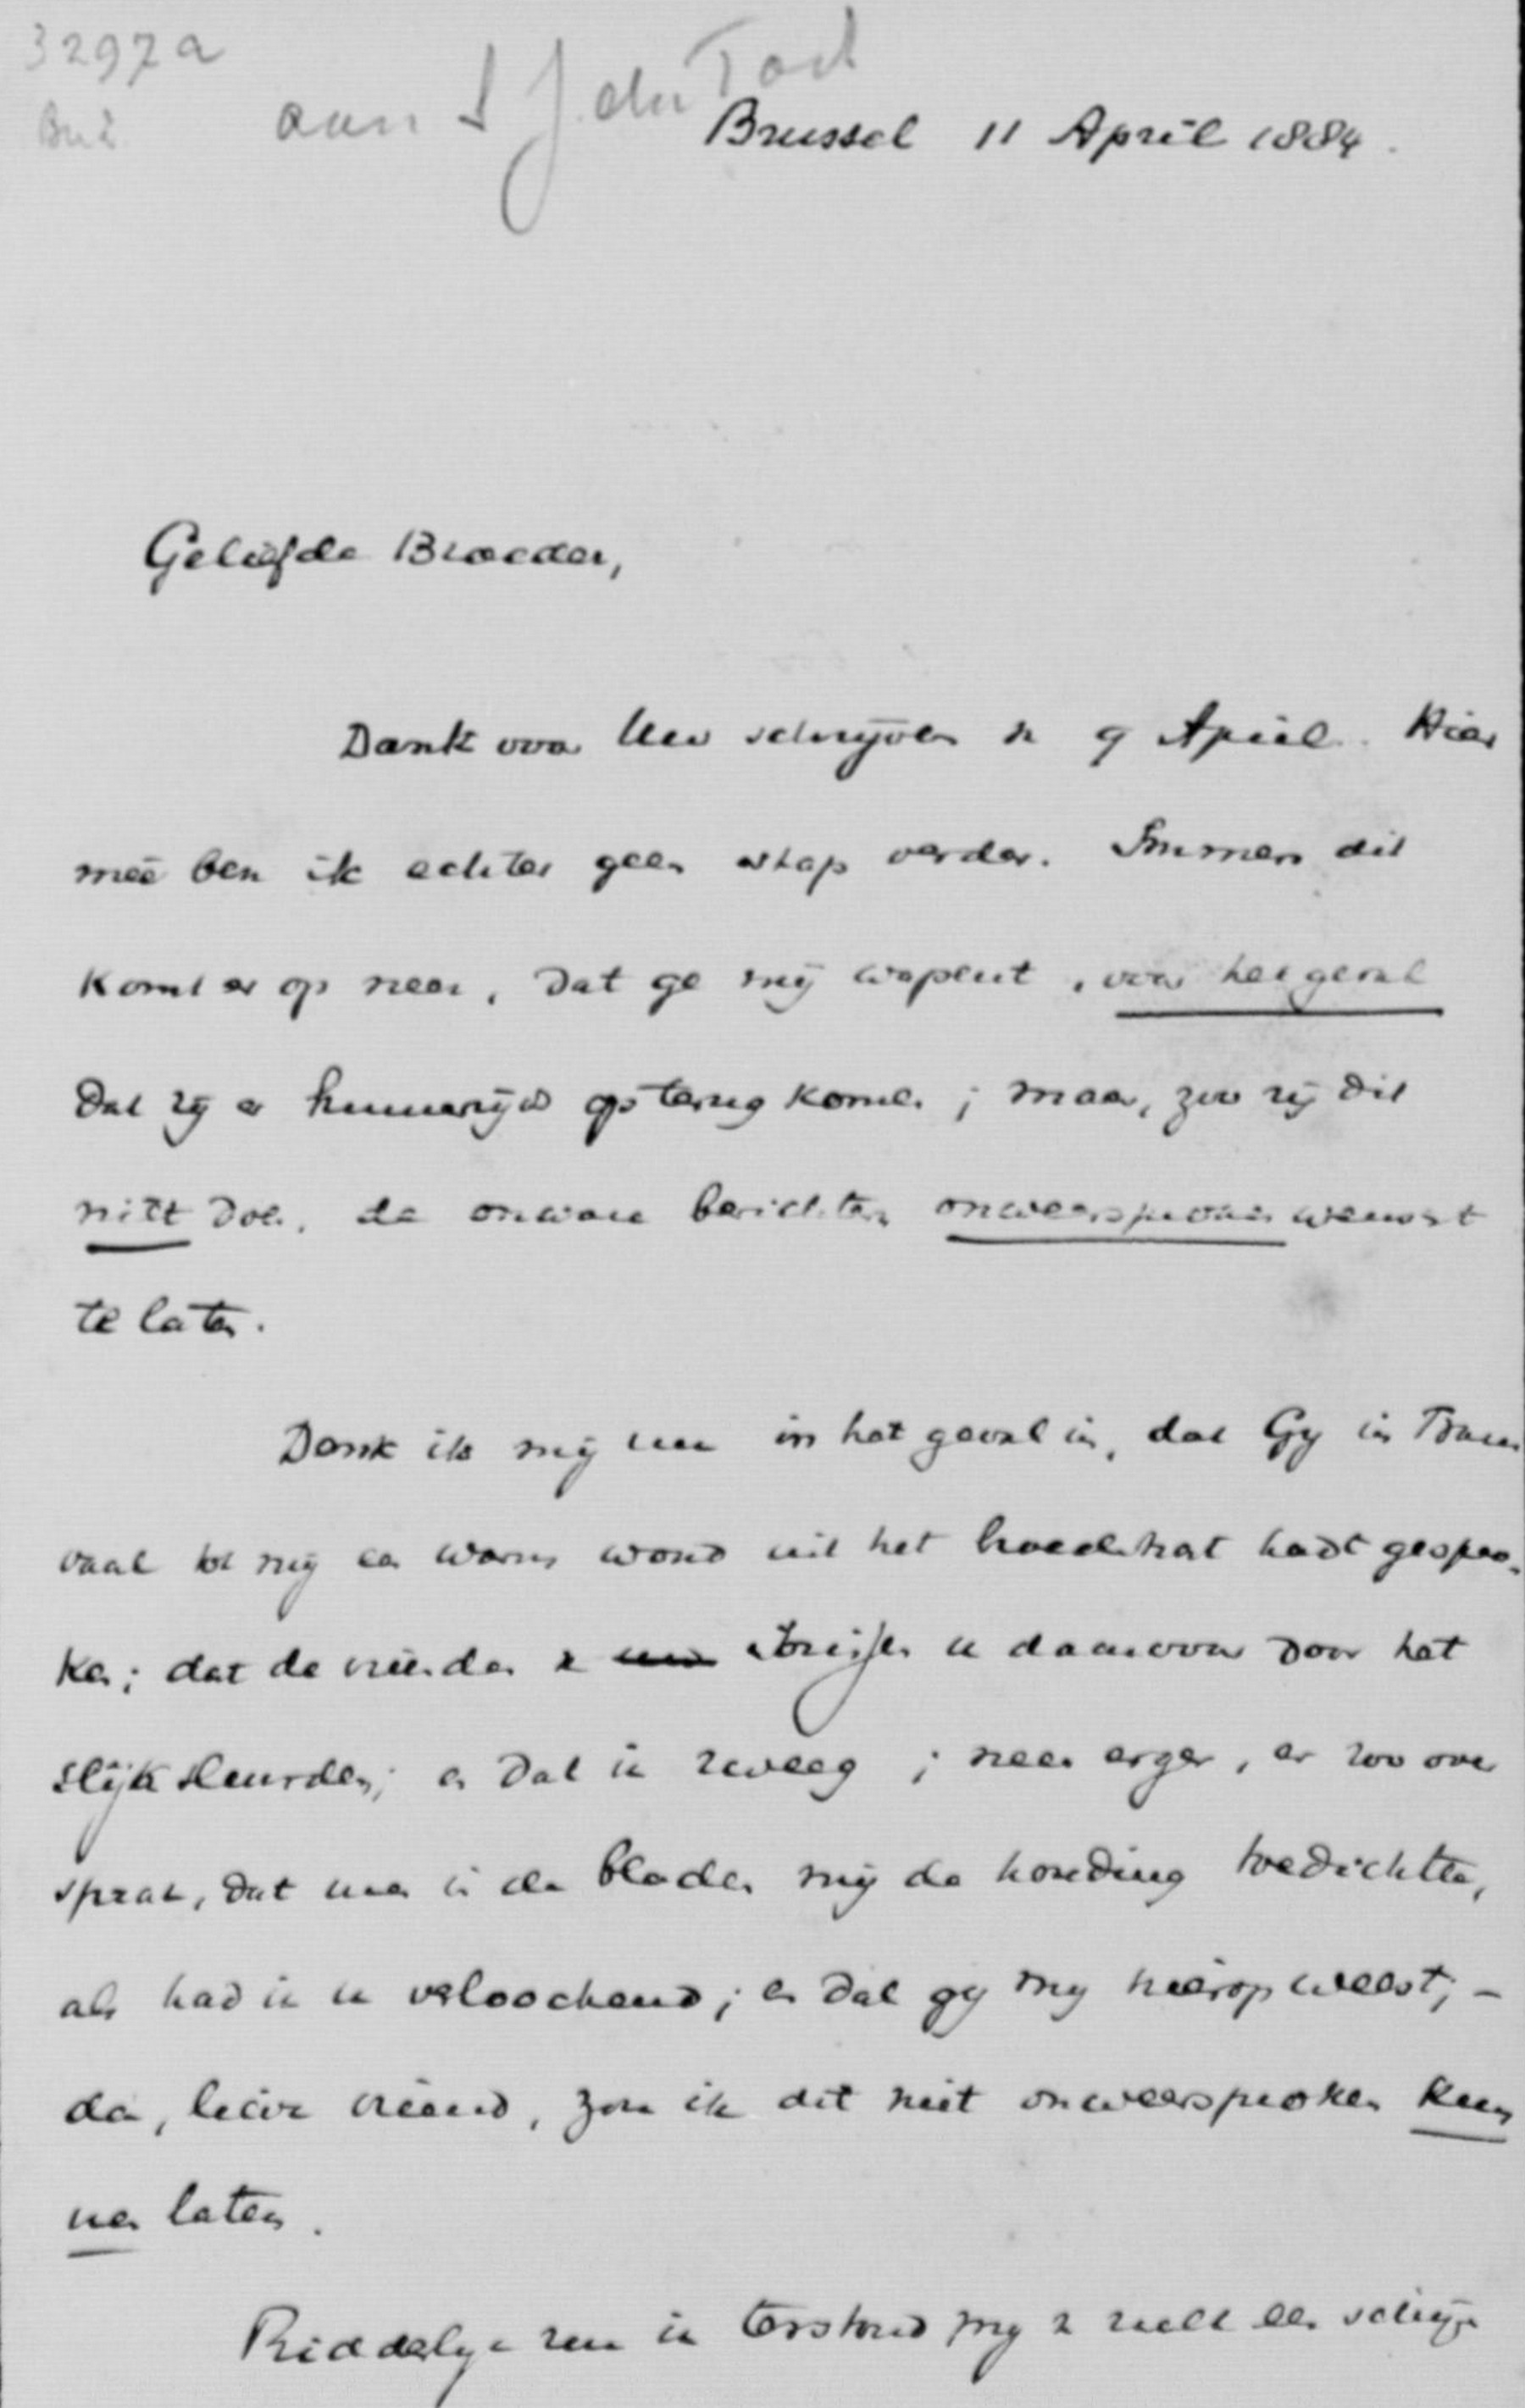 3297a
aan S J. du Toit
Brussel 11 April 1884.
Geliefde Broeder,
Dank voor Uw schrijven v. 9 April. Hier
meê ben ik echter geen stap verder. Immers dit
komt er op neer, dat ge mij wapent, voor het geval
dat zij er hunnerzijds op terug komen; maar, zoo zij dit
niet doen, de onware berichten onweersproken wenscht
te laten.
Denk ik mij nu in het geval in, dat Gij in Trans
vaal tot mij een warm woord uit het broederhart hadt gespro-
ken; dat de vrienden v. Brijsse u daarvoor door het
slijk sleurden; en dat ik zweeg; neen erger, er zoo over
sprak, dat men in de bladen mij de houding toedichtte,
als had ik u verloochend; en dat gij mij hierop weest; -
dan, lieve vriend, zou ik dit niet onweersproken kun
nen laten.
Ridderlijk zou ik terstond mij 2 een schrijv